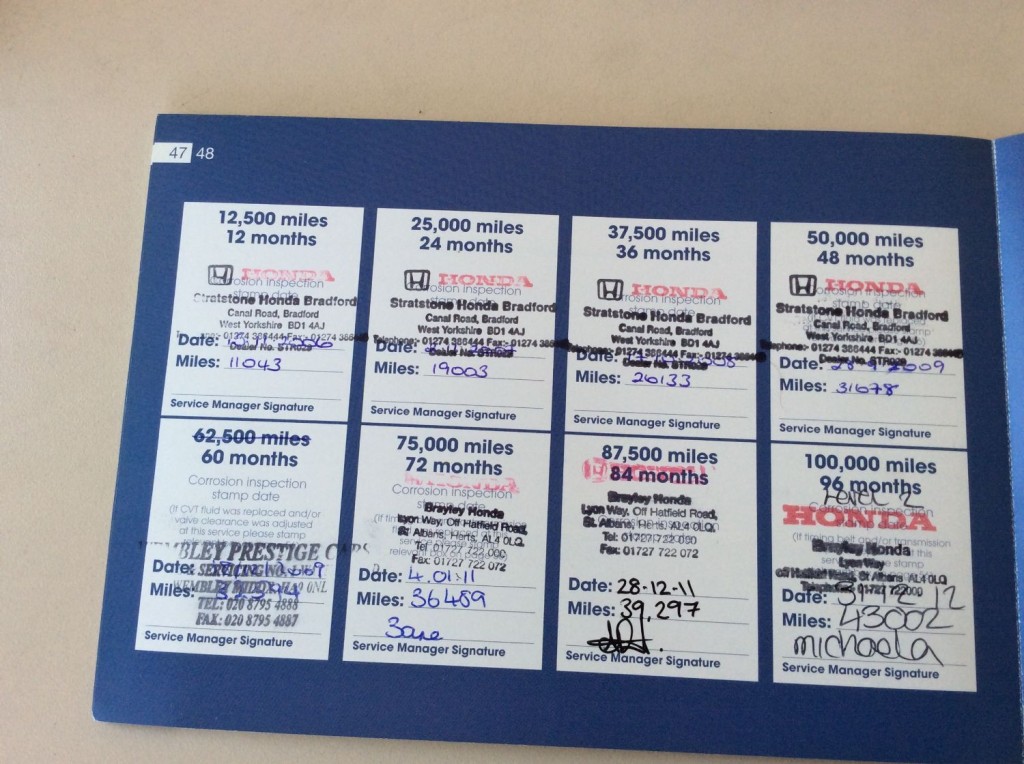 47 48
12,500 miles
12 months
HONDA
Corrosion inspection
stamp date
Stratstone Honda Bradford
Canal Road, Bradford
West Yorkshire BD1 4AJ
01274 388444 Fax:- 01274
Dealer No. STR029
Date:
Miles: 11043
Service Manager Signature
25,000 miles
24 months
HONDA
Corrosion inspection
stamp date
Stratstone Honda Bradford
Canal Road, Bradford
West Yorkshire BD1 4AJ
Telephone:- 01274 388444 Fax:- 01274
Date:
Miles: 19003
Service Manager Signature
37,500 miles
36 months
HONDA
Corrosion inspection
stamp date
Stratstone Honda Bradford
Canal Road, Bradford
West Yorkshire BD1 4AJ
Telephone:- 01274 388444 Fax:- 01274
Dealer No. STR029
Date:
Miles: 26133
Service Manager Signature
50,000 miles
48 months
HONDA
Corrosion inspection
stamp date
Stratstone Honda Bradford
Canal Road, Bradford
West Yorkshire BD1 4AJ
Telephone:- 01274 388444 Fax:- 01274
Dealer No. STR029
Date: 28 9 2009
Miles: 31678
Service Manager Signature
62,500 miles
60 months
Corrosion inspection
stamp date
(If CVT fluid was replaced and/or
valve clearance was adjusted
at this service please stamp
WEMBLEY PRESTIGE CARS
SERVICING
WEMBLEY MIDDX HA9 0NL
Date:
Miles:
TEL: 020 8795 4888
FAX: 020 8795 4887
Service Manager Signature
75,000 miles
72 months
HONDA
Corrosion inspection
stamp date
Brayley Honda
Lyon Way, Off Hatfield Road,
St Albans, Herts, AL4 0LQ.
Tel: 01727 722 000
Fax: 01727 722 072
Date: 4.01.11
Miles: 36489
Service Manager Signature
87,500 miles
84 months
HONDA
Brayley Honda
Lyon Way, Off Hatfield Road,
St Albans, Herts, AL4 0LQ.
Tel: 01727 722 000
Fax: 01727 722 072
Date: 28-12-11
Miles: 39,297
Service Manager Signature
100,000 miles
96 months
Level 2
HONDA
Brayley Honda
Lyon Way
off Hatfield Road, St Albans AL4 0LQ
Telephone: 01727 722000
Date: 12 12
Miles: 43002
michaela
Service Manager Signature